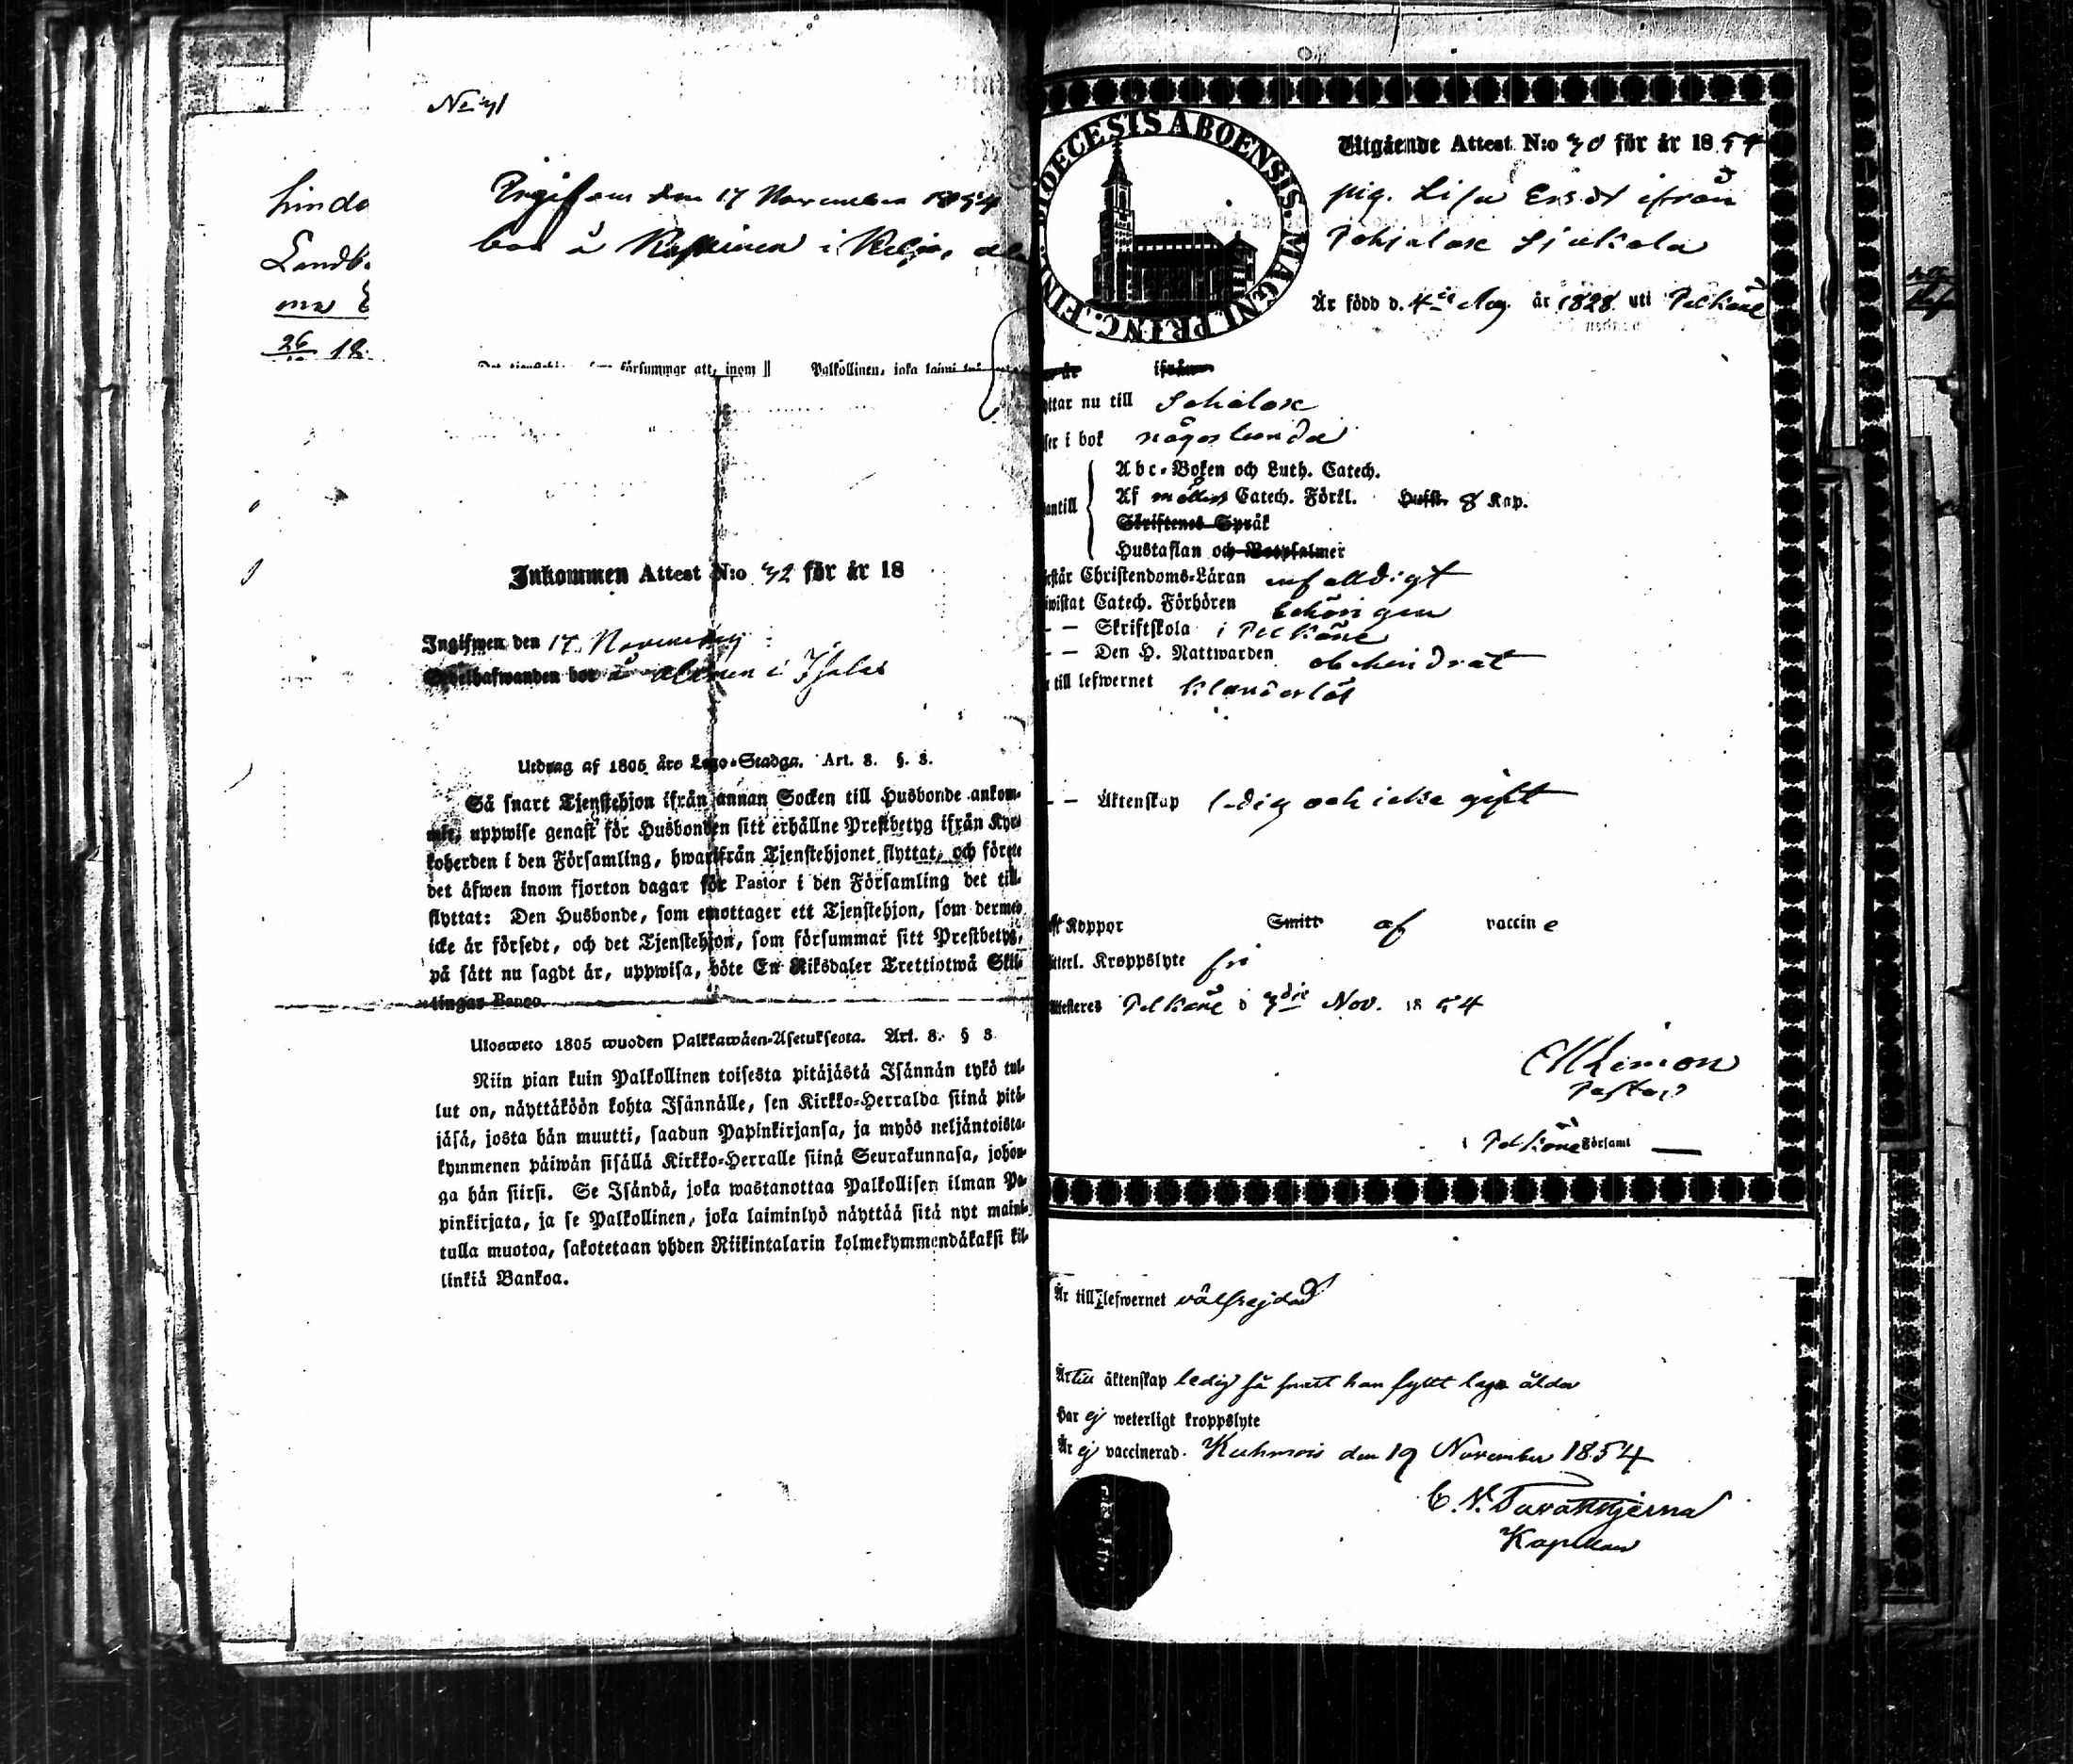 No 41
Ingifven den 17 November 1854
bor å i
Lindo
Landb
26
18
försummar att, inom || Palkollinen, joka laimi
Inkommen Attest N:o 42 för år 18
Ingifwen den 17 November
Sedelhafwanden bor å i
Utdrag af 1805 års Lego-Stadga. Art. 3. §. 3.
Så snart Tjenstehjon ifrån annan Socken till Husbonde ankom-
mit, uppwise genast för Husbonden sitt erhållne Prestbetyg ifrån Kyr-
koherden i den Församling, hwarifrån Tjenstehjonet flyttat, och förete
det äfwen inom fjorton dagar för Pastor i den Församling det till-
flyttat: Den Husbonde, som emottager ett Tjenstehjon, som dermed
icke är försedt, och det Tjenstehjon, som försummar sitt Prestbetyg,
på sätt nu sagdt är, uppwisa, böte En Riksdaler Trettiotwå Skil-
lingar Banco.
Ulosweto 1805 wuoden Palkkawäen-Asetuksesta. Art. 3. § 3.
Niin pian kuin Palkollinen toisesta pitäjästä Isännän tykö tul-
lut on, näyttäköön kohta Isännälle, sen Kirkko-Herralda siinä pitä-
jäsä, josta hän muutti, saadun Papinkirjansa, ja myös neljäntoista-
kymmenen päiwän sisällä Kirkko-Herralle siinä Seurakunnasa, johon-
ga hän siirsi. Se Isändä, joka wastanottaa Palkollisen ilman Pa-
pinkirjata, ja se Palkollinen, joka laiminlyö näyttää sitä nyt maini-
tulla muotoa, sakotetaan yhden Riikintalarin kolmekymmendäkaksi kil-
linkiä Bankoa.
DIOECESIS ABOENSIS. MAGNI PRINC. FINL.
Utgående Attest N:o 30 för år 1854
pig. Lisa Ersdt ifrån
Pohjalax Sjukola
Är född d. 4de Aug. år 1828 uti Pelkäne
år ifrån
yttar nu till Sahalax
ser i bok någorlunda
antill
Abc-Boken och Luth. Catech.
Af möllers Catech. Förkl. Hufst. 8 Kap.
Skriftenes Språk
Hustaflan och Botpsalmer
rstår Christendoms-Läran enfalldigt
wistat Catech. Förhören behörigen
– – Skriftskola i Pelkäne
– – Den H. Nattwarden obehindrat
till lefwernet klanderlös
– – Äktenskap ledig och icke gift
ft Koppor Smitt af vaccine
etterl. Kroppslyte fri
Attesteres Pelkäne d 3die Nov. 1854
Limon
Pastor
i Pelkäne Församl
Är till lefwernet välfrejdad
Är till äktenskap ledig så snart han fyllt laga ålder
Har ej weterligt kroppslyte
Är ej vaccinerad. Kuhmois den 19 November 1854
C. N. Tavaststjerna
Kapellan